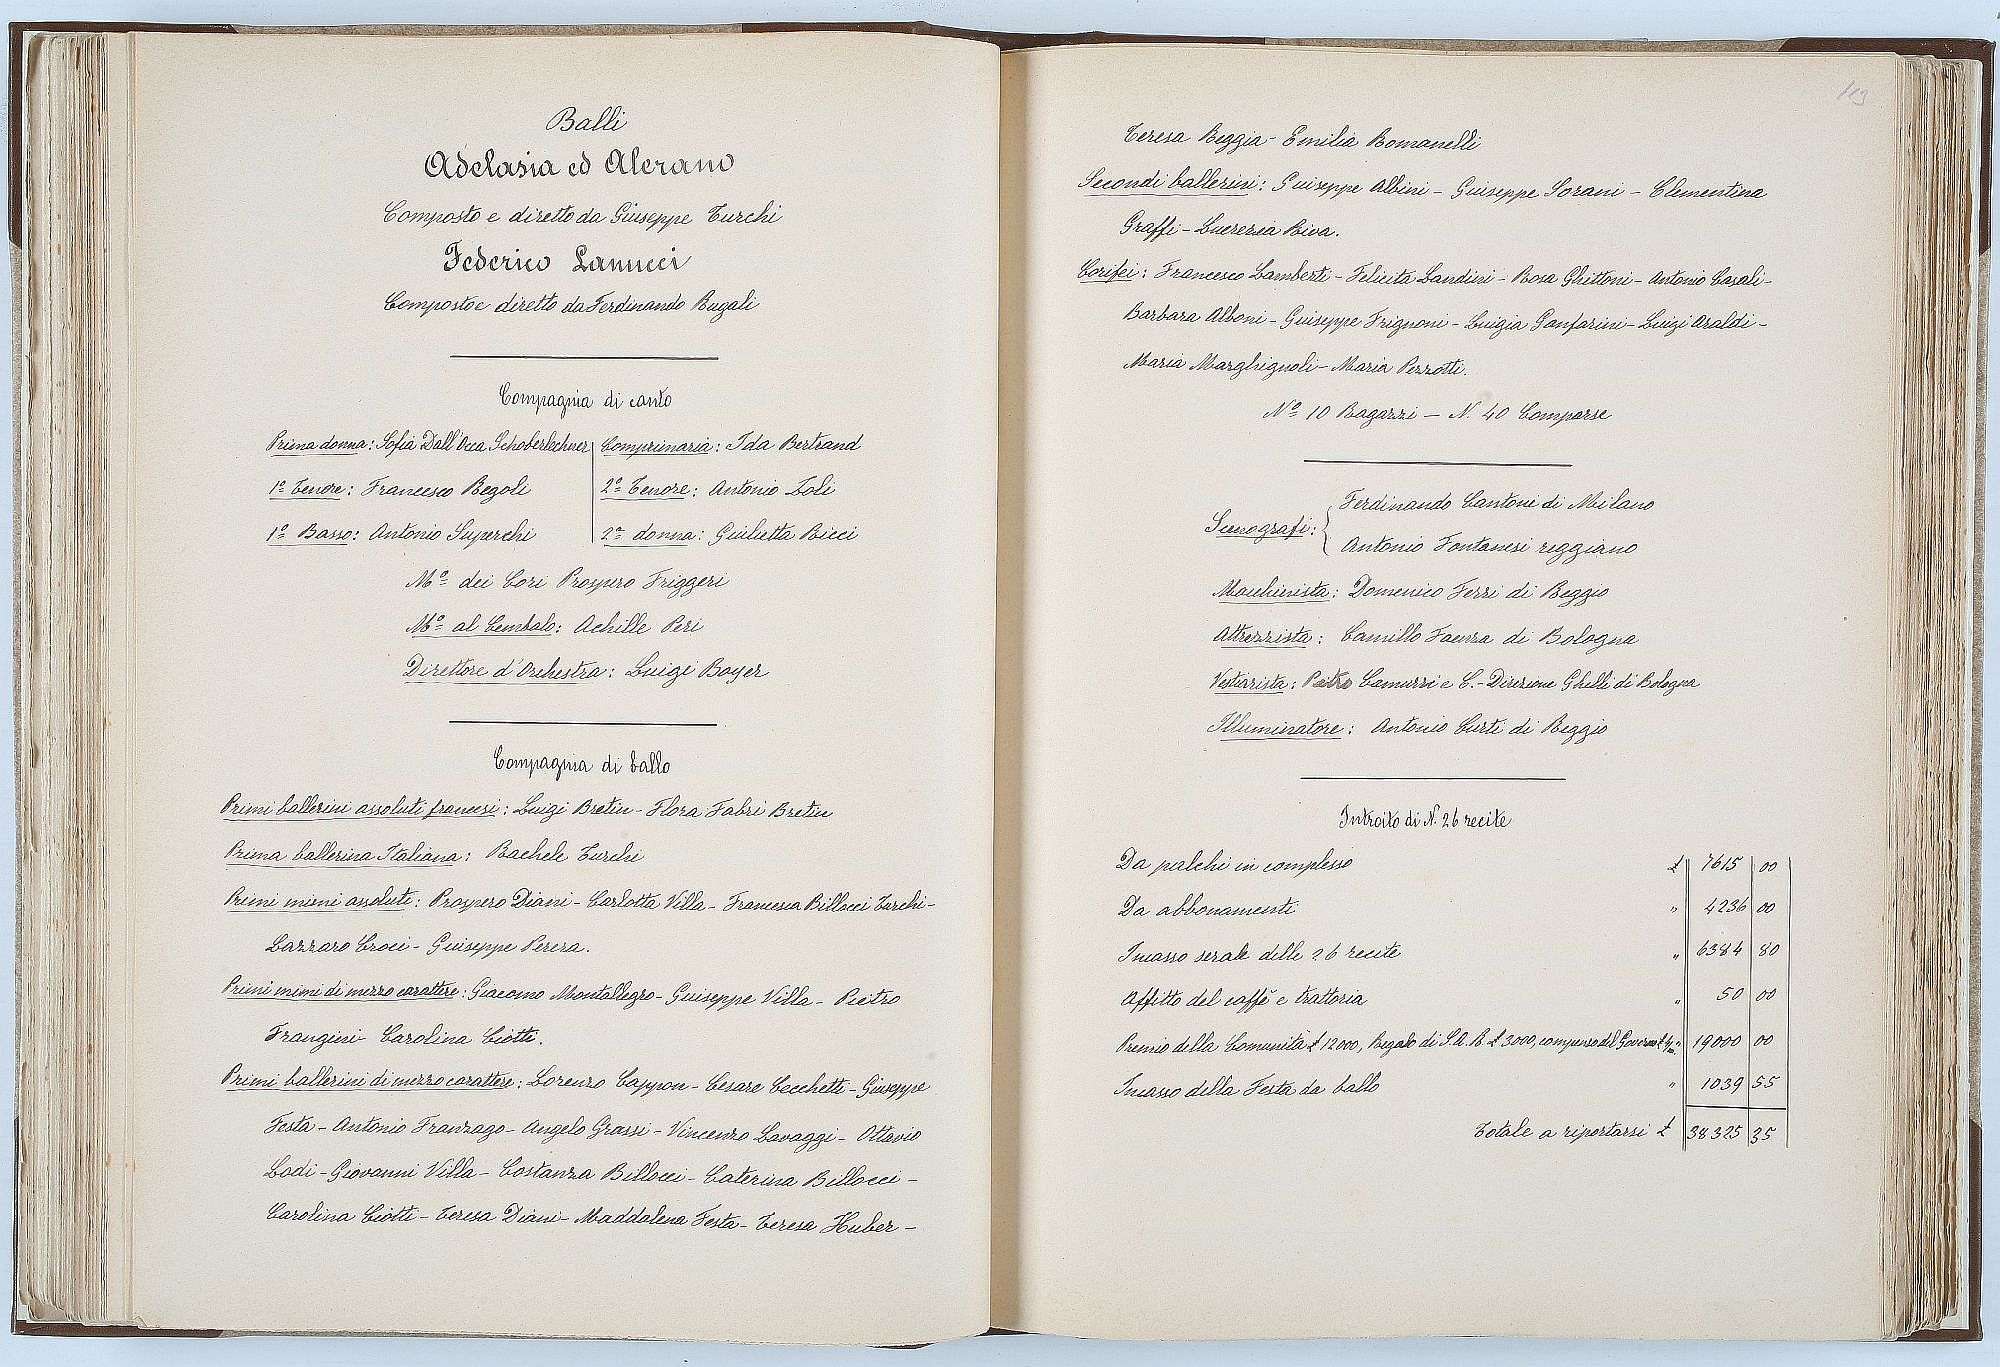 Balli
Adelasia ed Alerano
Composto e diretto da Giuseppe Turchi
Federico Lanucci
Composto e diretto da Ferdinando Rugali
Compagnia di canto
Prima donna: Sofia Dall'Occa Schoberlechner
Comprimaria: Ida Bertrand
1º Tenore: Francesco Regoli
2º Tenore: Antonio Zoli
1º Basso: Antonio Superchi
2ª donna: Giulietta Ricci
Mº dei Cori Prospero Friggeri
Mº al Cembalo: Achille Peri
Direttore d'Orchestra: Luigi Boyer
Compagnia di ballo
Primi ballerini assoluti francesi: Luigi Bretin - Flora Fabri Bretin
Prima ballerina Italiana: Rachele Turchi
Primi mimi assoluti: Prospero Diani - Carlotta Villa - Francesca Billocci Turchi -
Lazzaro Croci - Giuseppe Perera.
Primi mimi di mezzo carattere: Giacomo Montallegro - Giuseppe Villa - Pietro
Frangini - Carolina Ciotti.
Primi ballerini di mezzo carattere: Lorenzo Cappon - Cesare Cecchetti - Giuseppe
Festa - Antonio Franzago - Angelo Grassi - Vincenzo Lavaggi - Ottavio
Lodi - Giovanni Villa - Costanza Billocci - Caterina Billocci -
Carolina Ciotti - Teresa Diani - Maddalena Festa - Teresa Huber -
Teresa Reggia - Emilia Romanelli
Secondi ballerini: Giuseppe Albini - Giuseppe Sorani - Clementina
Graffi - Lucrezia Riva.
Corifei: Francesco Lamberti - Felicita Landini - Rosa Ghittoni - Antonio Casali -
Barbara Alboni - Giuseppe Frignoni - Luigia Panfarini - Luigi Araldi -
Maria Marghignoli - Maria Pezzotti.
Nº 10 Ragazzi - N. 40 Comparse
Scenografi: Ferdinando Cantoni di Milano
Antonio Fontanesi reggiano
Macchinista: Domenico Ferri di Reggio
Attrezzista: Camillo Faenza di Bologna
Vestiarista: Pietro Camurri e C. - Direzione Ghelli di Bologna
Illuminatore: Antonio Curti di Reggio
Introito di N. 26 recite
Da palchi in complesso £ 7615 00
Da abbonamenti " 4236 00
Incasso serale delle 26 recite " 6384 80
Affitto del caffè e trattoria " 50 00
Premio della Comunità £ 12000, Regalo di S. A. R. £ 3000, compenso del Governo £ 4/m " 19000 00
Incasso della Festa da ballo " 1039 55
Totale a riportarsi £ 38325 35